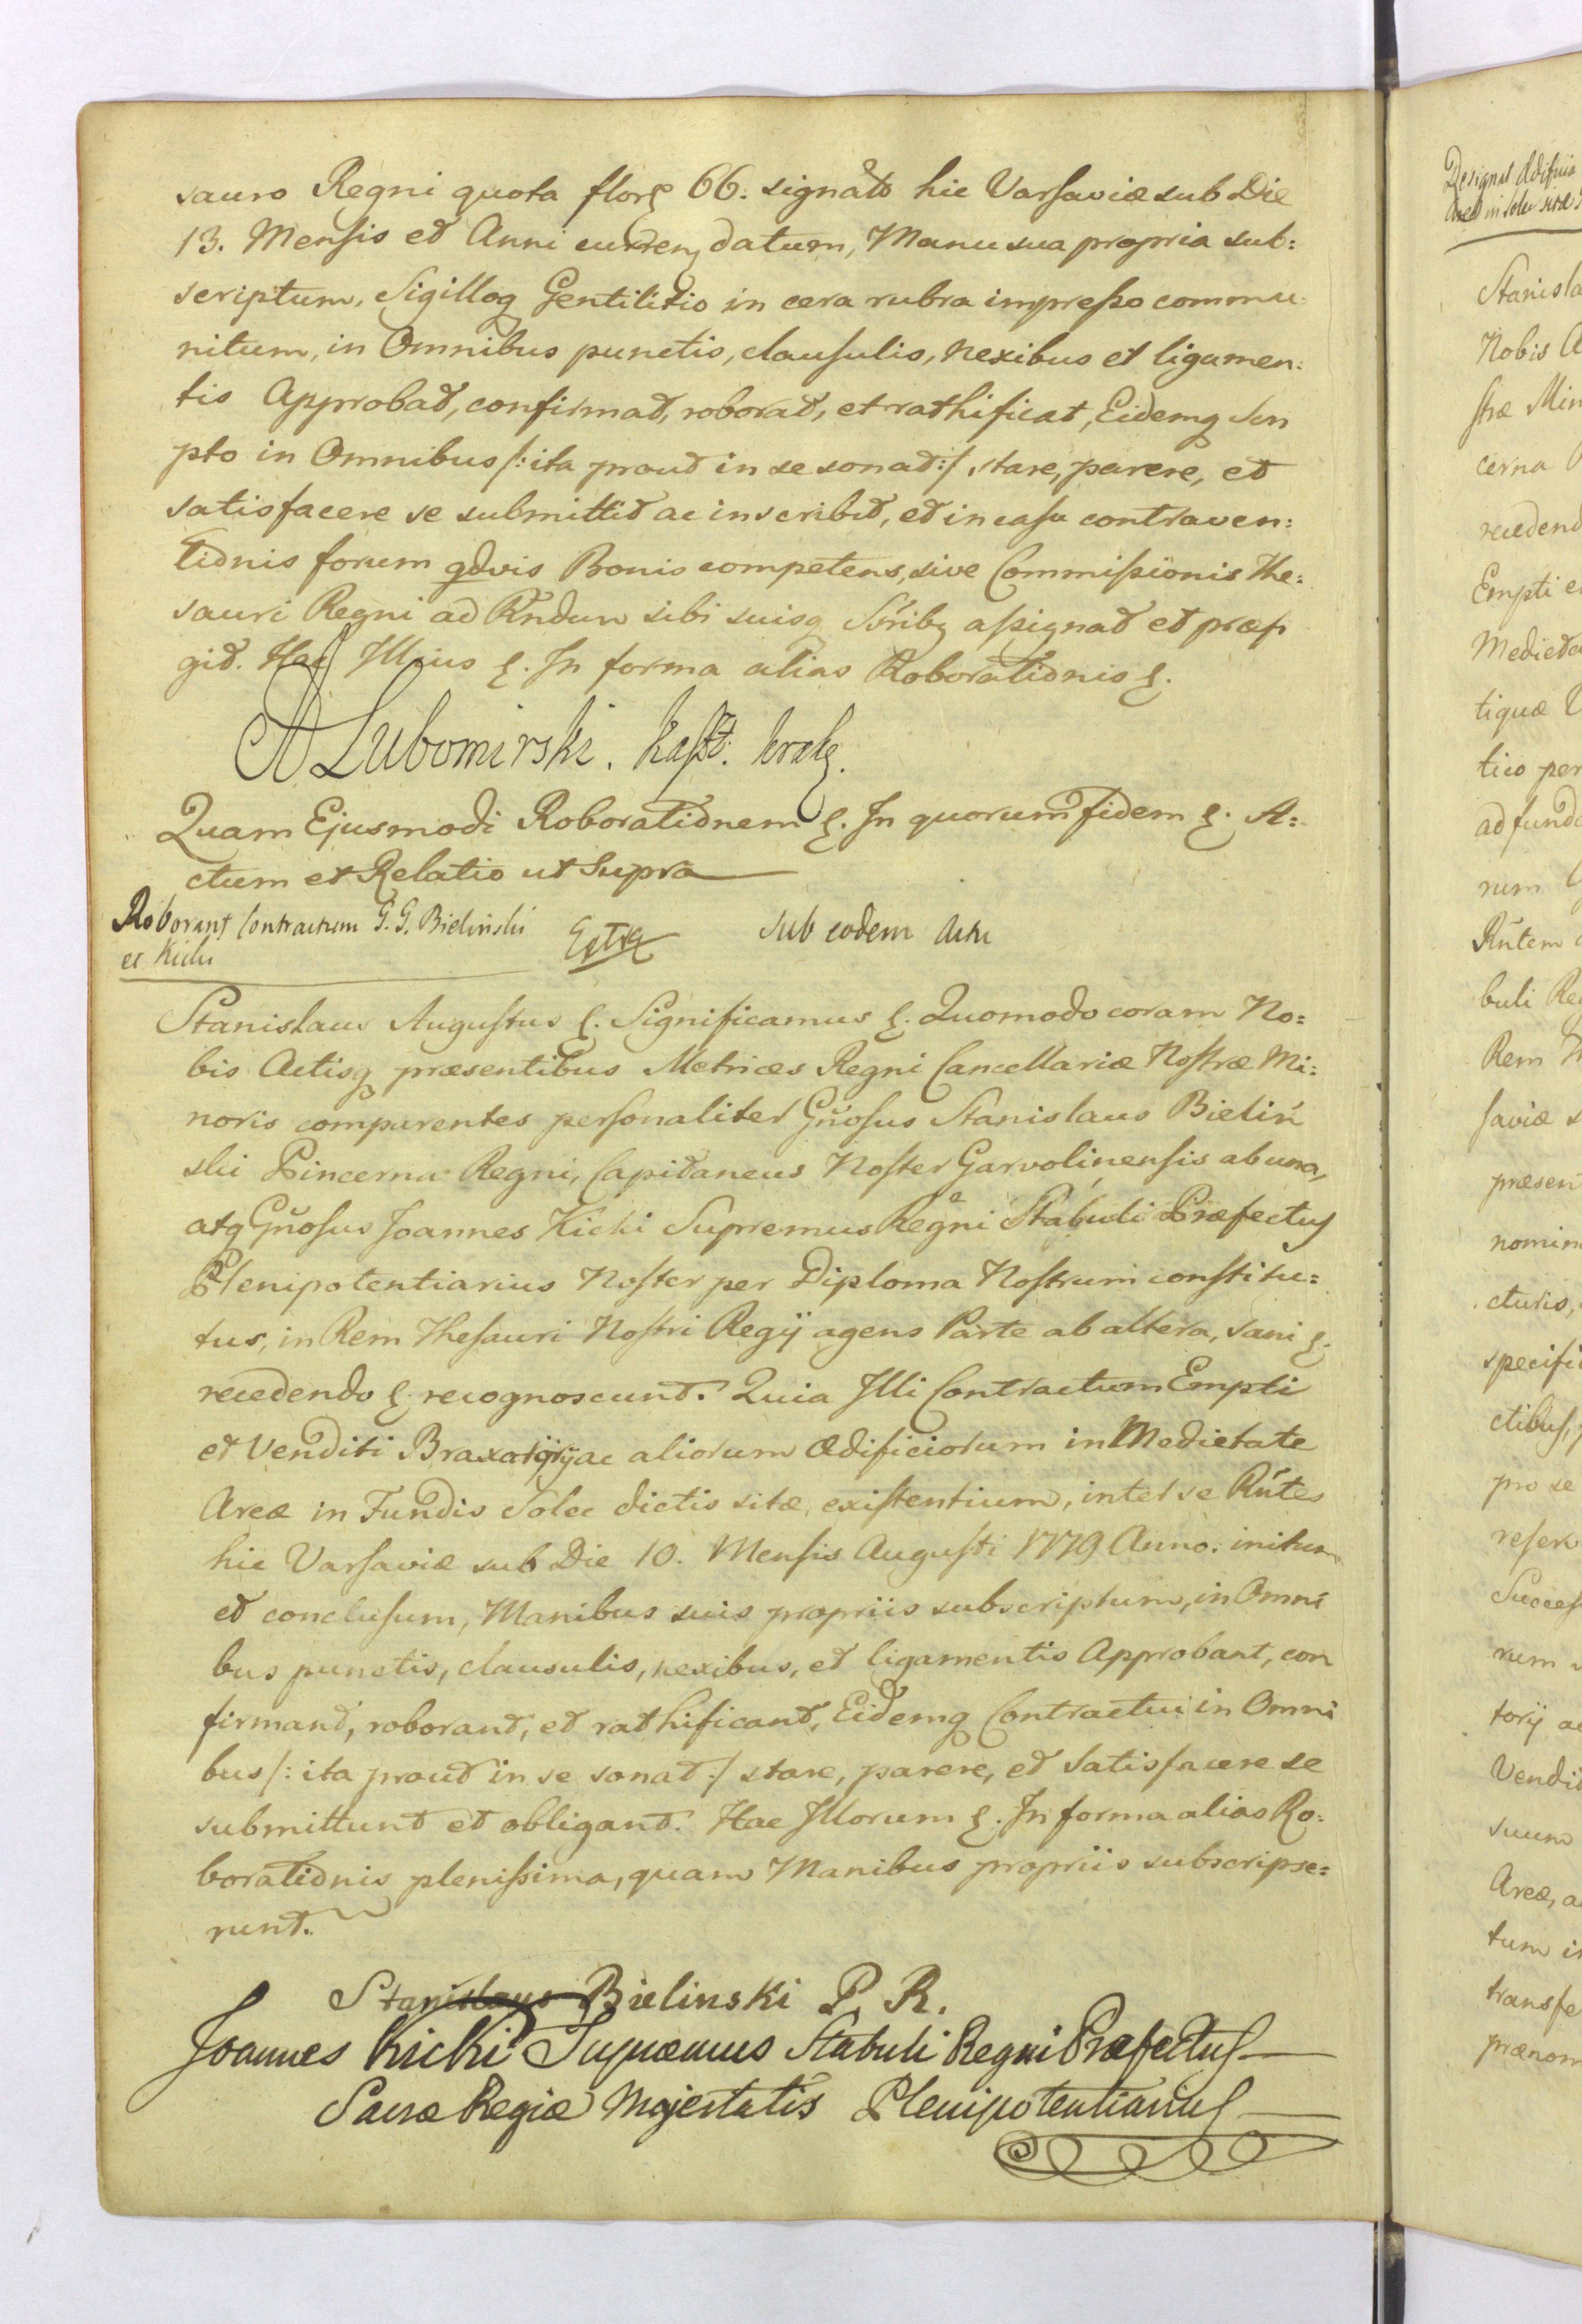 sauro Regni quota flor 66. signato hic Varsaviæ sub Die
13. Mensis et Anni curren datum, Manu sua propria sub:
scriptum, Sigilloq Gentilitio in cera rubra impresso commu:
nitum, in Omnibus punctis, clausulis, nexibus et ligamen:
tis Approbat, confirmat, roborat, et rathificat, Eidemq Scri
pto in Omnibus /: ita prout in se sonat :/ stare, parere, et
satisfacere se submittit ac inscribit, et in casu contraven:
tionis forum qdvis Bonis competens, sive Commissionis The:
sauri Regni ad Rndum sibi suisq Ssribq assignat et præfi
git. Hac Illius &. In forma alias Roborationis &.
A Lubomirski. Kaszt: krak.
Quam Ejusmodi Roborationem &. In quorum fidem &. A:
ctum et Relatio ut Supra
Roborant Contractum G. G. Bielinski
et Kicki
Extra
sub eodem Actu
Stanislaus Augustus &. Significamus &. Quomodo coram No:
bis Actisq præsentibus Metrices Regni Cancellariæ Nostræ Mi:
noris comparentes personaliter Gnosus Stanislaus Bieliń
ski Pincerna Regni, Capitaneus Noster Garvolinensis ab una,
atq Gnosus Joannes Kicki Supremus Regni Stabuli Præfectus
Plenipotentiarius Noster per Diploma Nostrum constitu:
tus, in Rem Thesauri Nostri Regij agens Parte ab altera, sani &.
recedendo &. recognoscunt. Quia Illi Contractum Empti
et Venditi Braxatorij ac aliorum Ædificiorum in Medietate
Areæ in Fundis Solec dictis sitæ, existentium, inter se Rntes
hic Varsaviæ sub Die 10. Mensis Augusti 1779 Anno. initum
et conclusum, Manibus suis propriis subscriptum, in Omni
bus punctis, clausulis, nexibus, et ligamentis Approbant, con
firmant, roborant, et rathificant, Eidemq Contractui in Omni
bus /: ita prout in se sonat :/ stare, parere, et satisfacere se
submittunt et obligant. Hac Illorum &. In forma alias Ro:
borationis plenissima, quam Manibus propriis subscripse:
runt.
Stanislaus Bielinski P. R.
Joannes Kicki Supræmus Stabuli Regni Præfectus
Sacræ Regiæ Majestatis Plenipotentiarius
Designat Ædificia
Stanisla
Nobis A
stræ Min
cerna
recedend
Empti e
Medieta
tiquæ
tico per
ad fund
rum
Rntem
buli Re
Rem
saviæ s
præsen
nomin
cturis,
specifi
ctibus,
pro se
reser
Succes
rum
torij ac
Vendi
suum
Areæ, a
tum i
transfe
prænom